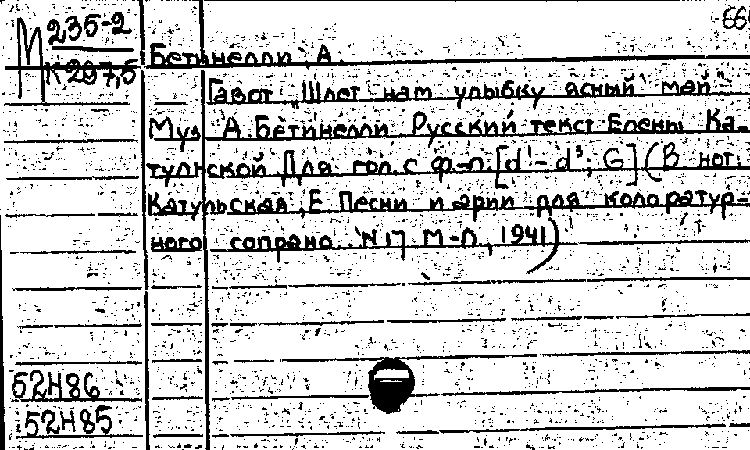 М 235-2
К 297,5
66
Бетинелли, А.
Гавот „Шлет нам улыбку ясный май".
Муз А. Бетинелли Русский текст Елены Ка-
тульской Для гол. с ф-п. [d¹-d³; G] (В нот.
Катульская, Е Песни и арии для колоратур=
ного сопрано. N17 М-Л, 1941)
52Н86
52Н85